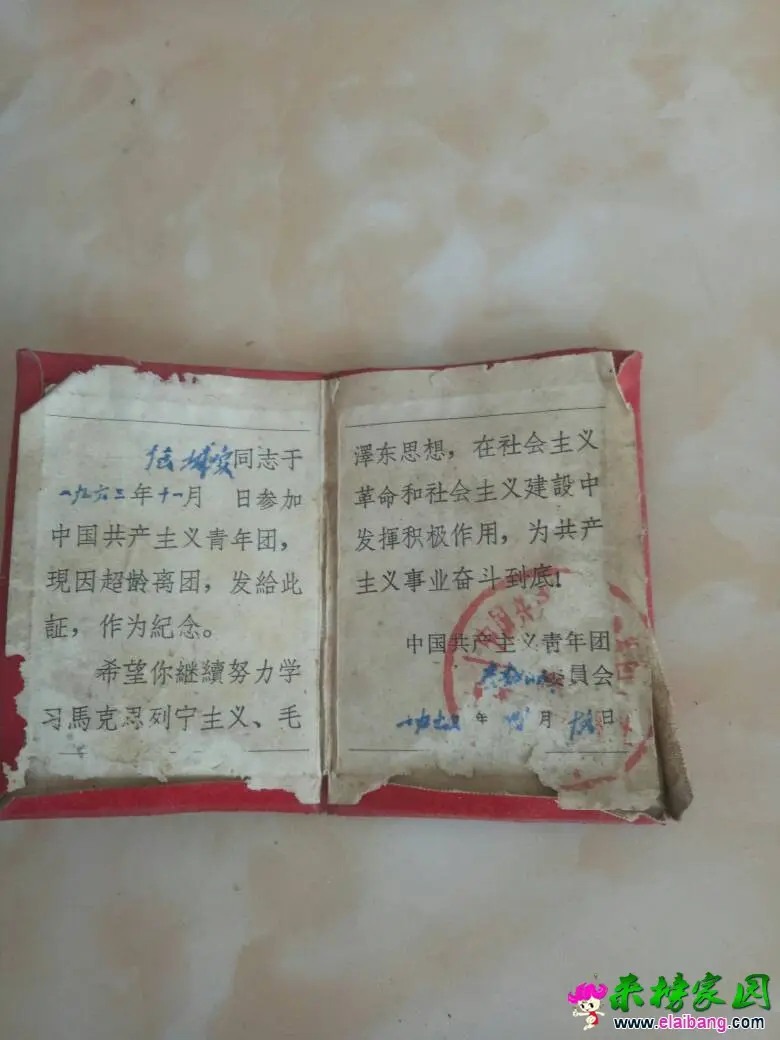 同志于
一九六三年十一月 日参加
中国共产主义青年团，
現因超齡离团，发給此
証，作为紀念。
希望你継續努力学
习馬克思列宁主义、毛
澤东思想，在社会主义
革命和社会主义建設中
发揮积极作用，为共产
主义事业奋斗到底！
中国共产主义青年团
委員会
年 月 日
来榜家园
www.elaibang.com